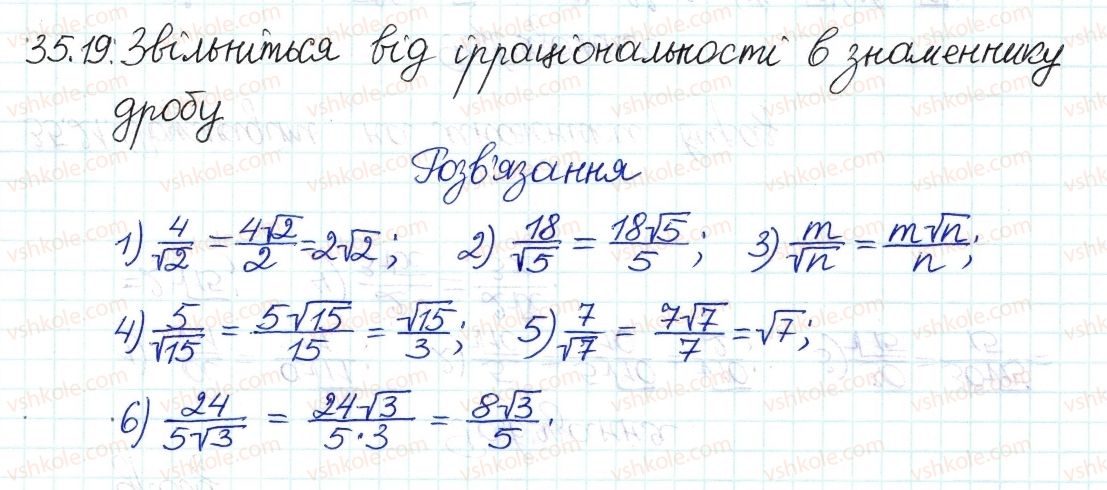 35.19. Звільніться від ірраціональності в знаменнику
дробу
Розв'язання
1) 4/√2 = 4√2/2 = 2√2; 2) 18/√5 = 18√5/5; 3) m/√n = m√n/n;
4) 5/√15 = 5√15/15 = √15/3; 5) 7/√7 = 7√7/7 = √7;
6) 24/5√3 = 24√3/5·3 = 8√3/5.